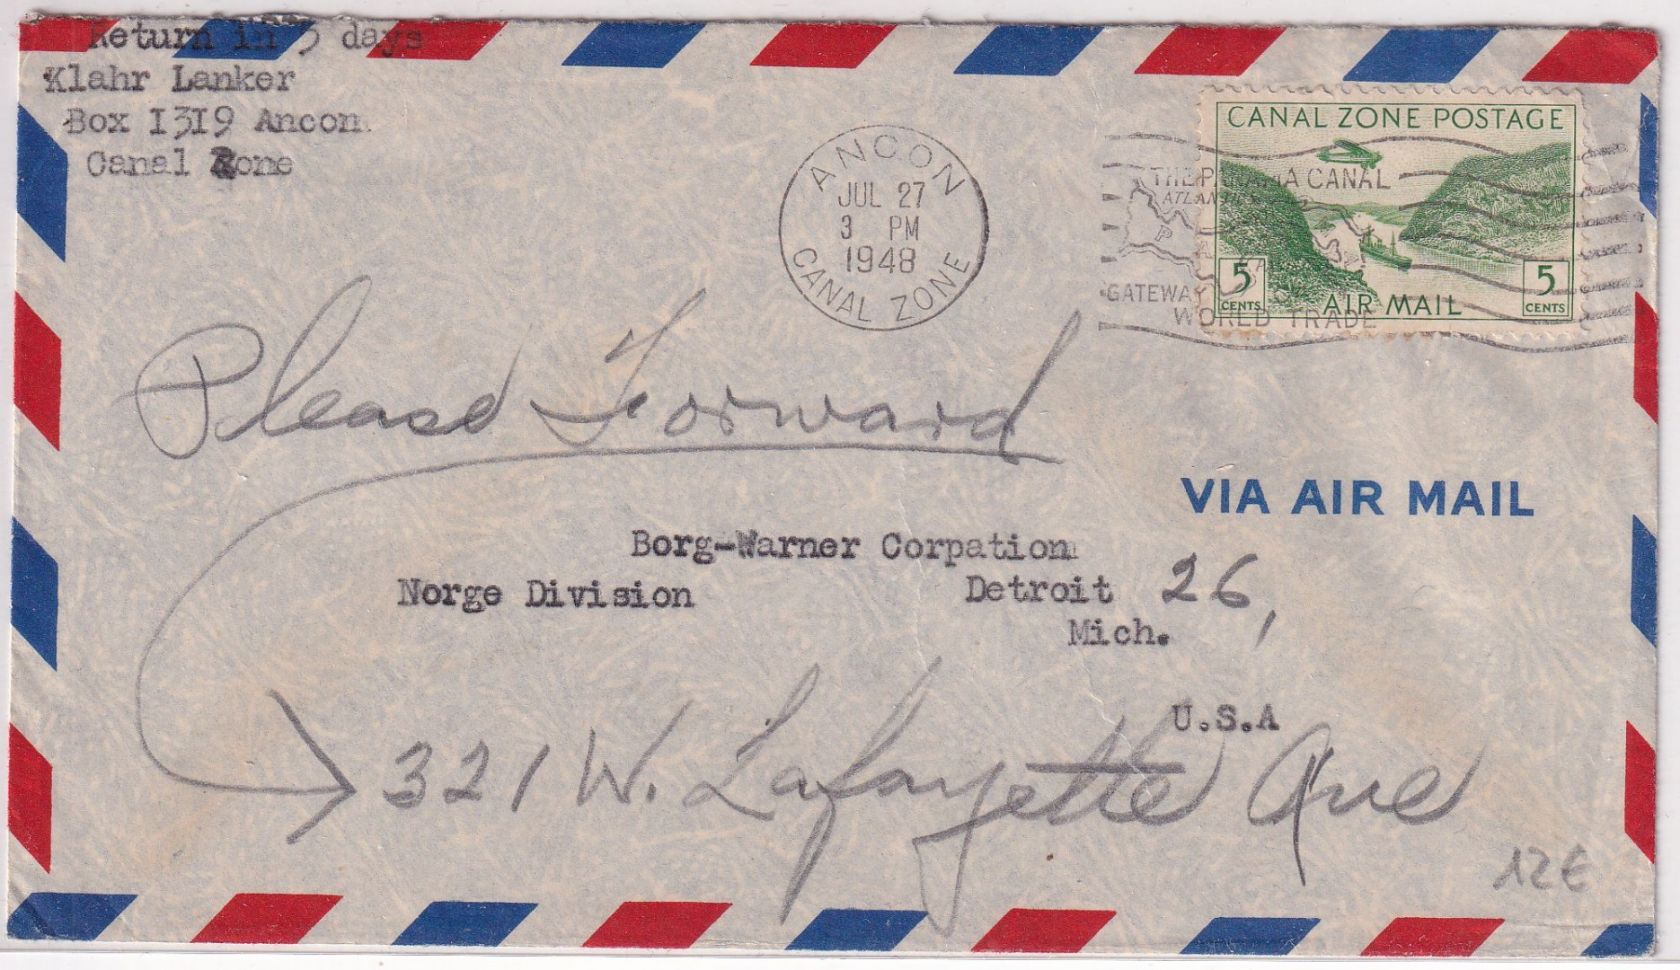 Return in 5 days
Klahr Lanker
Box I3I9 Ancon
Canal Zone
ANCON
JUL 27
3 PM
1948
CANAL ZONE
THE PANAMA CANAL
ATLANTIC
GATEWAY
WORLD TRADE
CANAL ZONE POSTAGE
5 CENTS
AIR MAIL
5 CENTS
Please Forward
VIA AIR MAIL
Borg-Warner Corpation
Norge Division Detroit 26,
Mich.
U.S.A
321 W. Lafayette Ave
12€